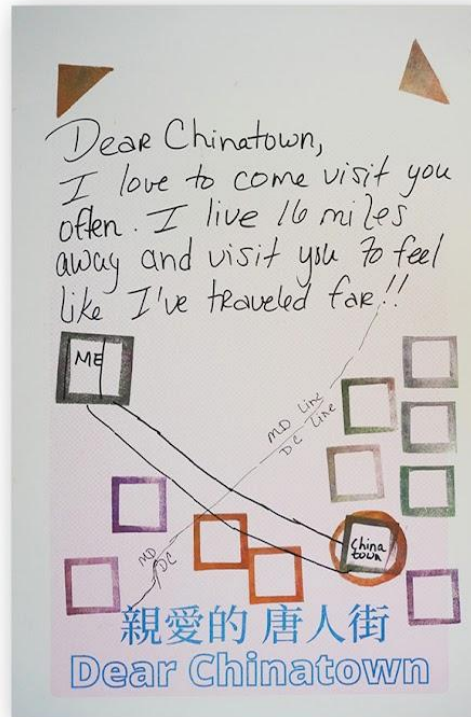 Dear Chinatown,
I love to come visit you
often. I live 16 miles
away and visit you to feel
like I've traveled far!!
ME
MD Line
DC Line
China
town
MD
DC
親愛的 唐人街
Dear Chinatown